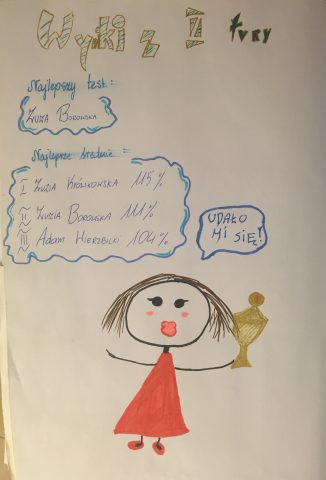 Wyniki z II tury
Najlepszy test:
Zuzia Borowska
Najlepsze średnie =
I Zuzia Królikowska 115%
II Zuzia Borowska 111%
III Adam Wierzbicki 104%
UDAŁO
MI SIĘ!